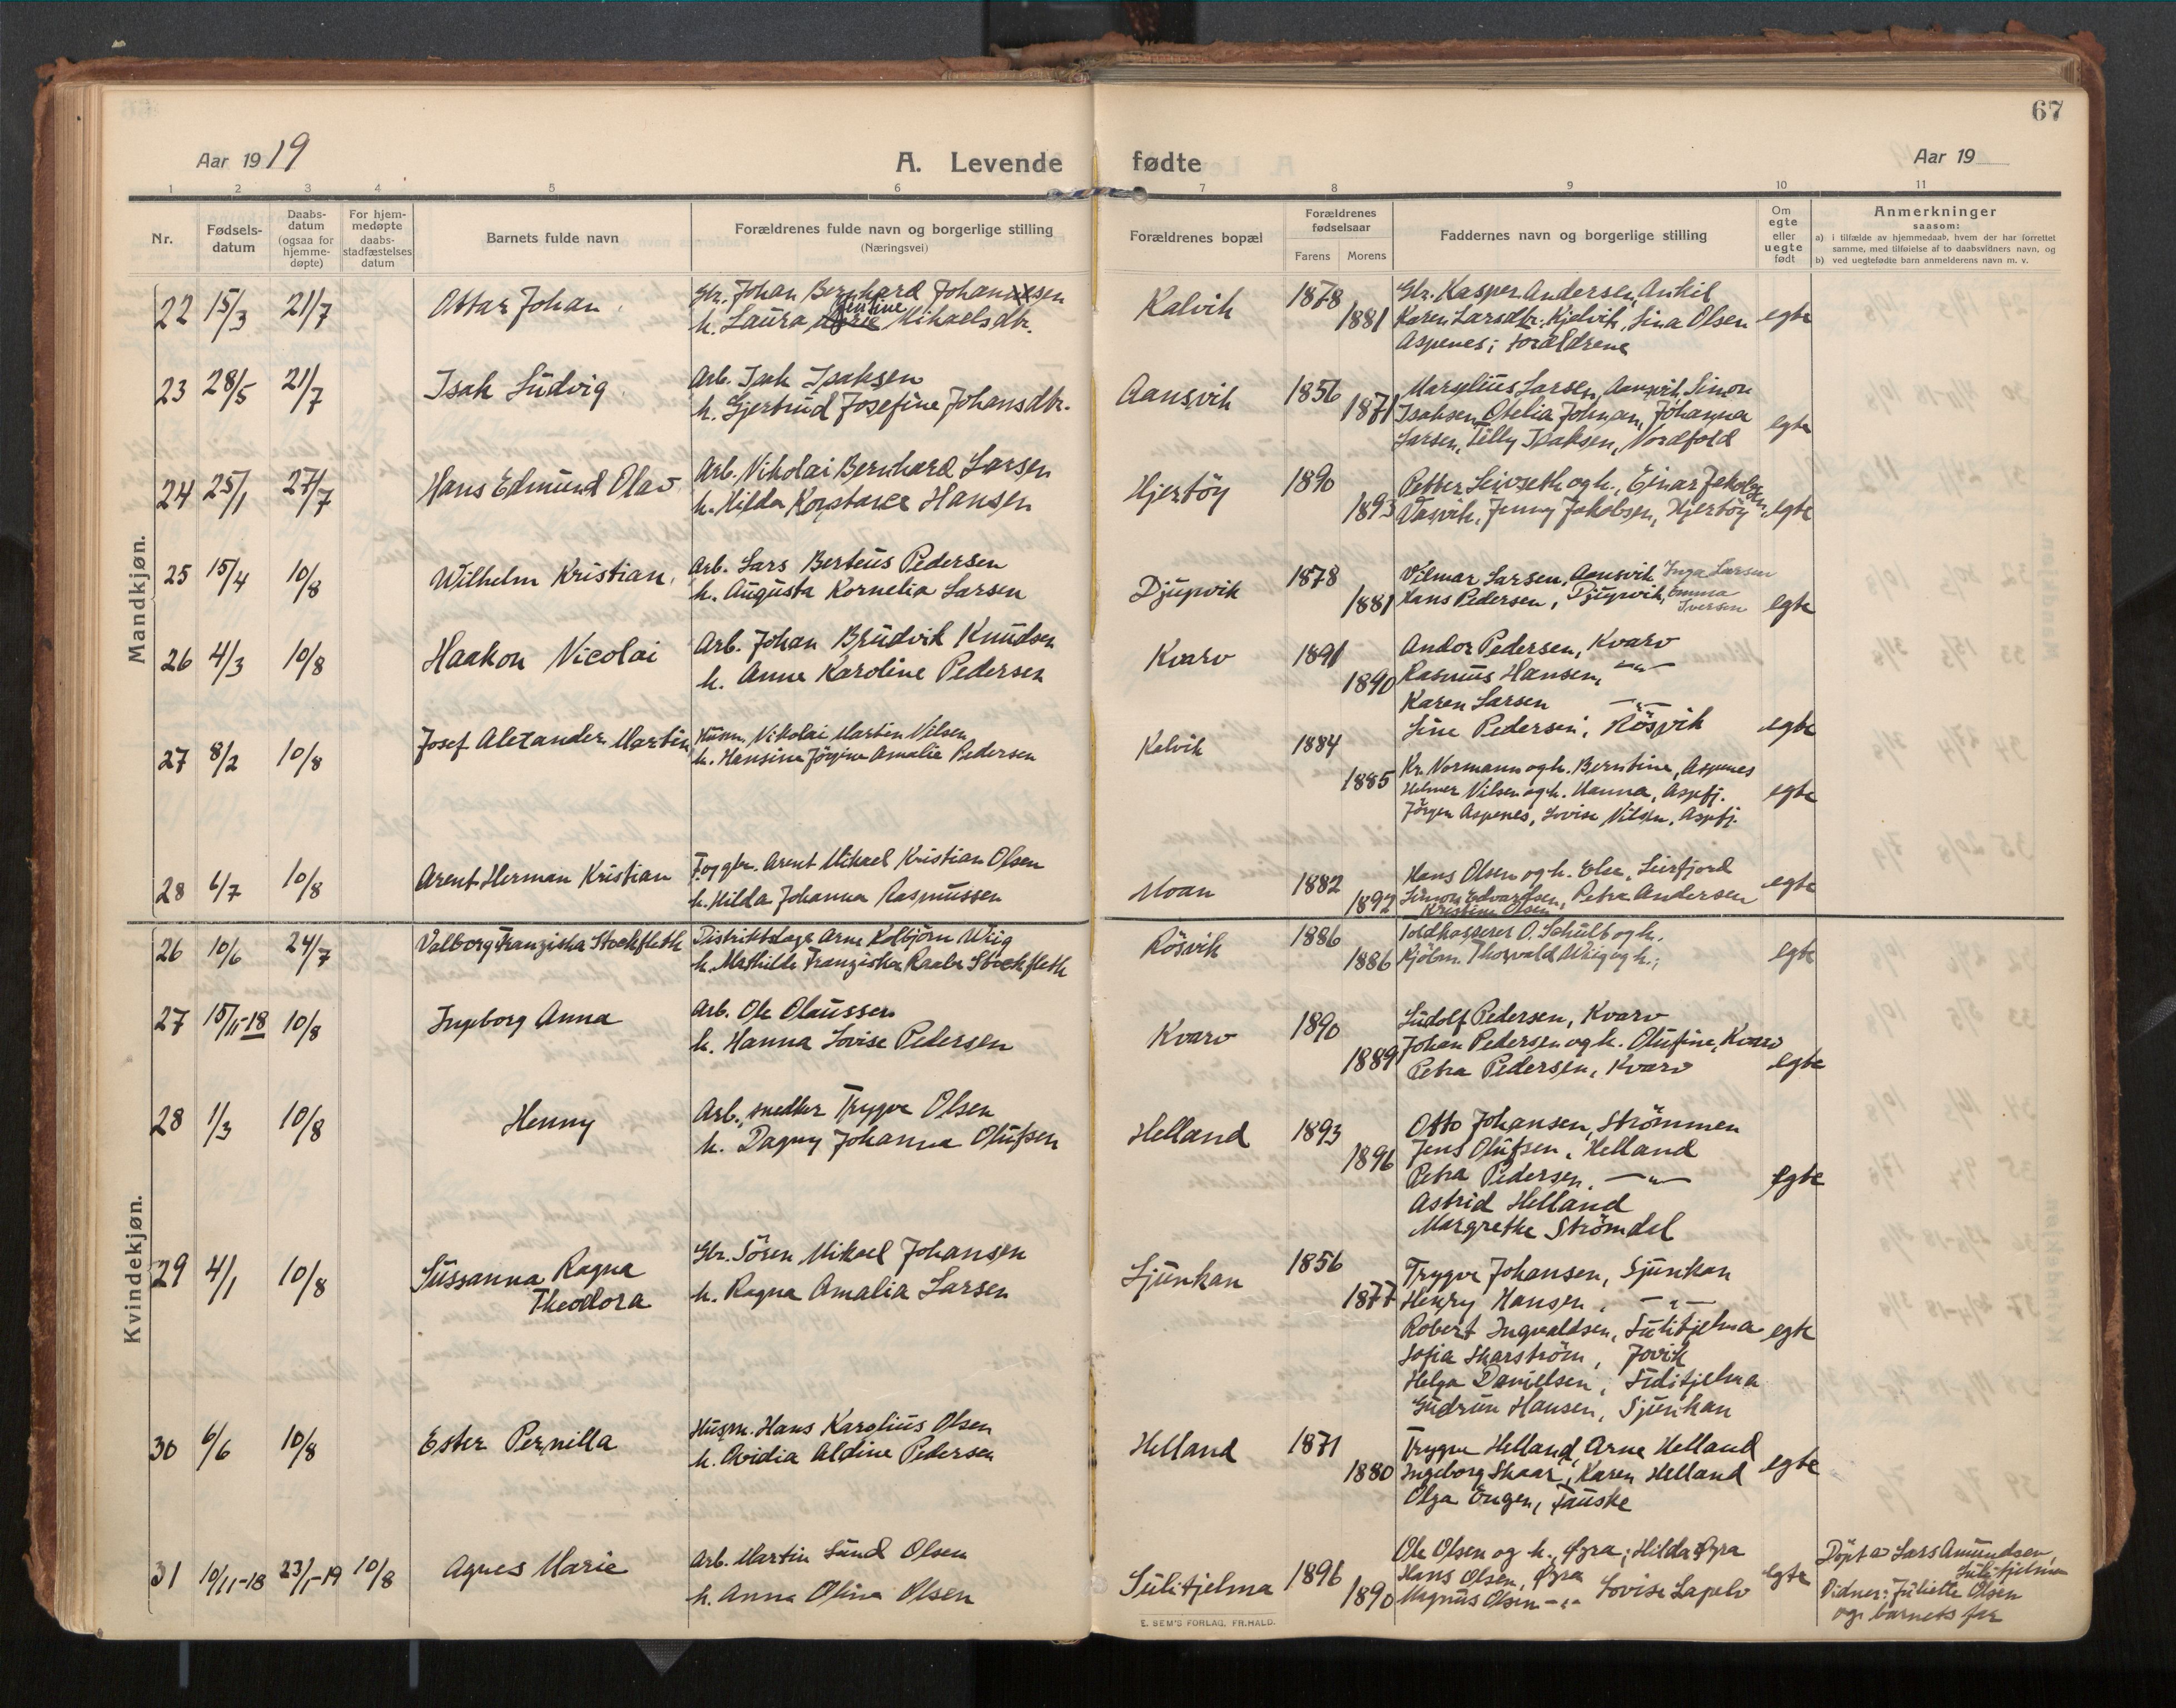 67
Aar 1919
A. Levende fødte
Aar 19
1 2 3 4 5 6 7 8 9 10 11
Nr.
Fødsels-
datum
Daabs-
datum
(ogsaa for
hjemme-
døpte)
For hjem-
medøpte
daabs-
stadfæstelses
datum
Barnets fulde navn
Forældrenes fulde navn og borgerlige stilling
(Næringsvei)
Forældrenes bopæl
Forældrenes
fødselsaar
Farens Morens
Faddernes navn og borgerlige stilling
Om
egte
eller
uegte
født
Anmerkninger
saasom:
a) i tilfælde av hjemmedaab, hvem der har forrettet
samme, med tilføielse af to daabsvidners navn, og
b) ved uegtefødte barn anmelderens navn m. v.
Mandkjøn.
22 15/3 21/7 Ottar Johan
Gbr. Johan Bernhard Johansen
h. Laura Mikaelsdtr.
Kalvik 1878 1881
Gbr. Kasper Andersen, Ankil
Karen Larsdtr. Kjelvik, Lina Olsen
Aspenes; forældrene
egte
23 28/5 21/7 Isak Ludvig
Arb. Isak Isaksen
h. Gjertrud Josefine Johansdtr.
Aansvik 1856 1871
Marselius Larsen, Aansvik, Simon
Isaksen, Otelia Johnsen, Johanna
Larsen, Tilly Isaksen, Nordfold
egte
24 25/1 27/7 Hans Edmund Olav
Arb. Nikolai Bernhard Larsen
h. Hilda Konstance Hansen
Hjertöy 1890 1893
Petter Leivseth og h., Einar Jakobsen
Vasvik, Jenny Jakobsen, Hjertöy
egte
25 15/4 10/8 Wilhelm Kristian
Arb. Lars Berteus Pedersen
h. Augusta Kornelia Larsen
Djupvik 1878 1881
Vilmar Larsen, Aansvik Inga Larsen
Hans Pedersen, Djupvik, Emma
Iversen
egte
26 4/3 10/8 Haakon Nicolai
Arb. Johan Brudvik Knudsen
h. Anna Karoline Pedersen
Kvarv 1891 1890
Andor Pedersen, Kvarv
Rasmus Hansen, —"—
Karen Larsen —"—
Line Pedersen, Rösvik
egte
27 8/2 10/8 Josef Alexander Martin
Husm. Nikolai Martin Nilsen
h. Hansine Jörgine Amalie Pedersen
Kalvik 1884 1885
Kr. Normann og h. Berntine, Aspenes
Helmer Nilsen og h. Hanna, Aspfj.
Jörgen Aspenes, Lovise Nilsen, Aspfj.
egte
28 6/7 10/8 Arent Herman Kristian
Arent Mikael Kristian Olsen
h. Hilda Johanna Rasmussen
Moan 1882 1892
Hans Olsen og h. Else, Leirfjord
Simon Edvardsen, Petra Andersen
Kristine Olsen
egte
Kvindekjøn.
26 10/6 24/7 Valborg Franziska Stockfleth
Distriktslæge Arne Kolbjörn Wiig
h. Mathilde Franziska Stockfleth
Rösvik 1886 1886
Toldkasserer O. Schulb og h.
Kjöbm. Thorvald Wiig og h.;
egte
27 15/11-18 10/8 Ingeborg Anna
Arb. Ole Olaussen
h. Hanna Lovise Pedersen
Kvarv 1890 1889
Ludolf Pedersen, Kvarv
Johan Pedersen og h. Olufine, Kvarv
Petra Pedersen, Kvarv
egte
28 1/3 10/8 Henny
Arb., snedker Trygve Olsen
h. Dagny Johanna Olufsen
Helland 1893 1896
Otto Johansen, Strömmen
Jens Olufsen, Helland
Petra Pedersen, —"—
Astrid Helland
Margrethe Strömdal
egte
29 4/1 10/8 Sussanna Ragna
Theodora
Gbr. Sören Mikael Johansen
h. Ragna Amalia Larsen
Sjunkan 1856 1877
Trygve Johansen, Sjunkan
Henry Hansen, —"—
Robert Ingvaldsen, Sulitjelma
Sofia Skarström, Jovik
Helga Danielsen, Sulitjelma
Gudrun Hansen, Sjunkan
egte
30 6/6 10/8 Ester Pernilla
Husm. Hans Karolius Olsen
h. Ovidia Aldine Pedersen
Helland 1871 1880
Trygve Helland, Arne Helland
Ingeborg Skaar, Karen Helland
Olga Engen, Fauske
egte
31 10/11-18 23/1-19 10/8 Agnes Marie
Arb. Martin Sund Olsen
h. Anna Olina Olsen
Sulitjelma 1896 1890
Ole Olsen og h. Øyra; Hilda Øyra
Hans Olsen, Øyra
Magnus Olsen -"- Lovise Lapelv
egte
Döpt av Lars Amundsen,
Sulitjelma
Vidner: Juliette Olsen
og barnets far
E. SEM'S FORLAG, FR.HALD.